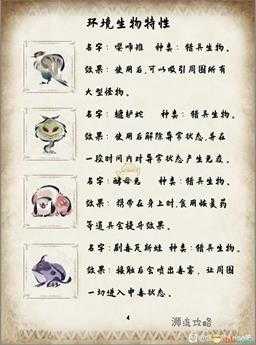 环境生物特性
名字：嘤咔雉 种类：猎具生物。
效果：使用后，可以吸引周围所有
大型怪物。
名字：蟾驴蛇 种类：猎具生物。
效果：使用后解除异常状态，并在
一段时间内对异常状态产生免疫。
名字：酵母兔 种类：猎具生物。
效果：携带在身上时，食用恢复药
等道具会提升效果。
名字：剧毒瓦斯蛙 种类：猎具生物。
效果：接触后会喷出毒雾，让周围
一切进入中毒状态。
4
游迅攻略